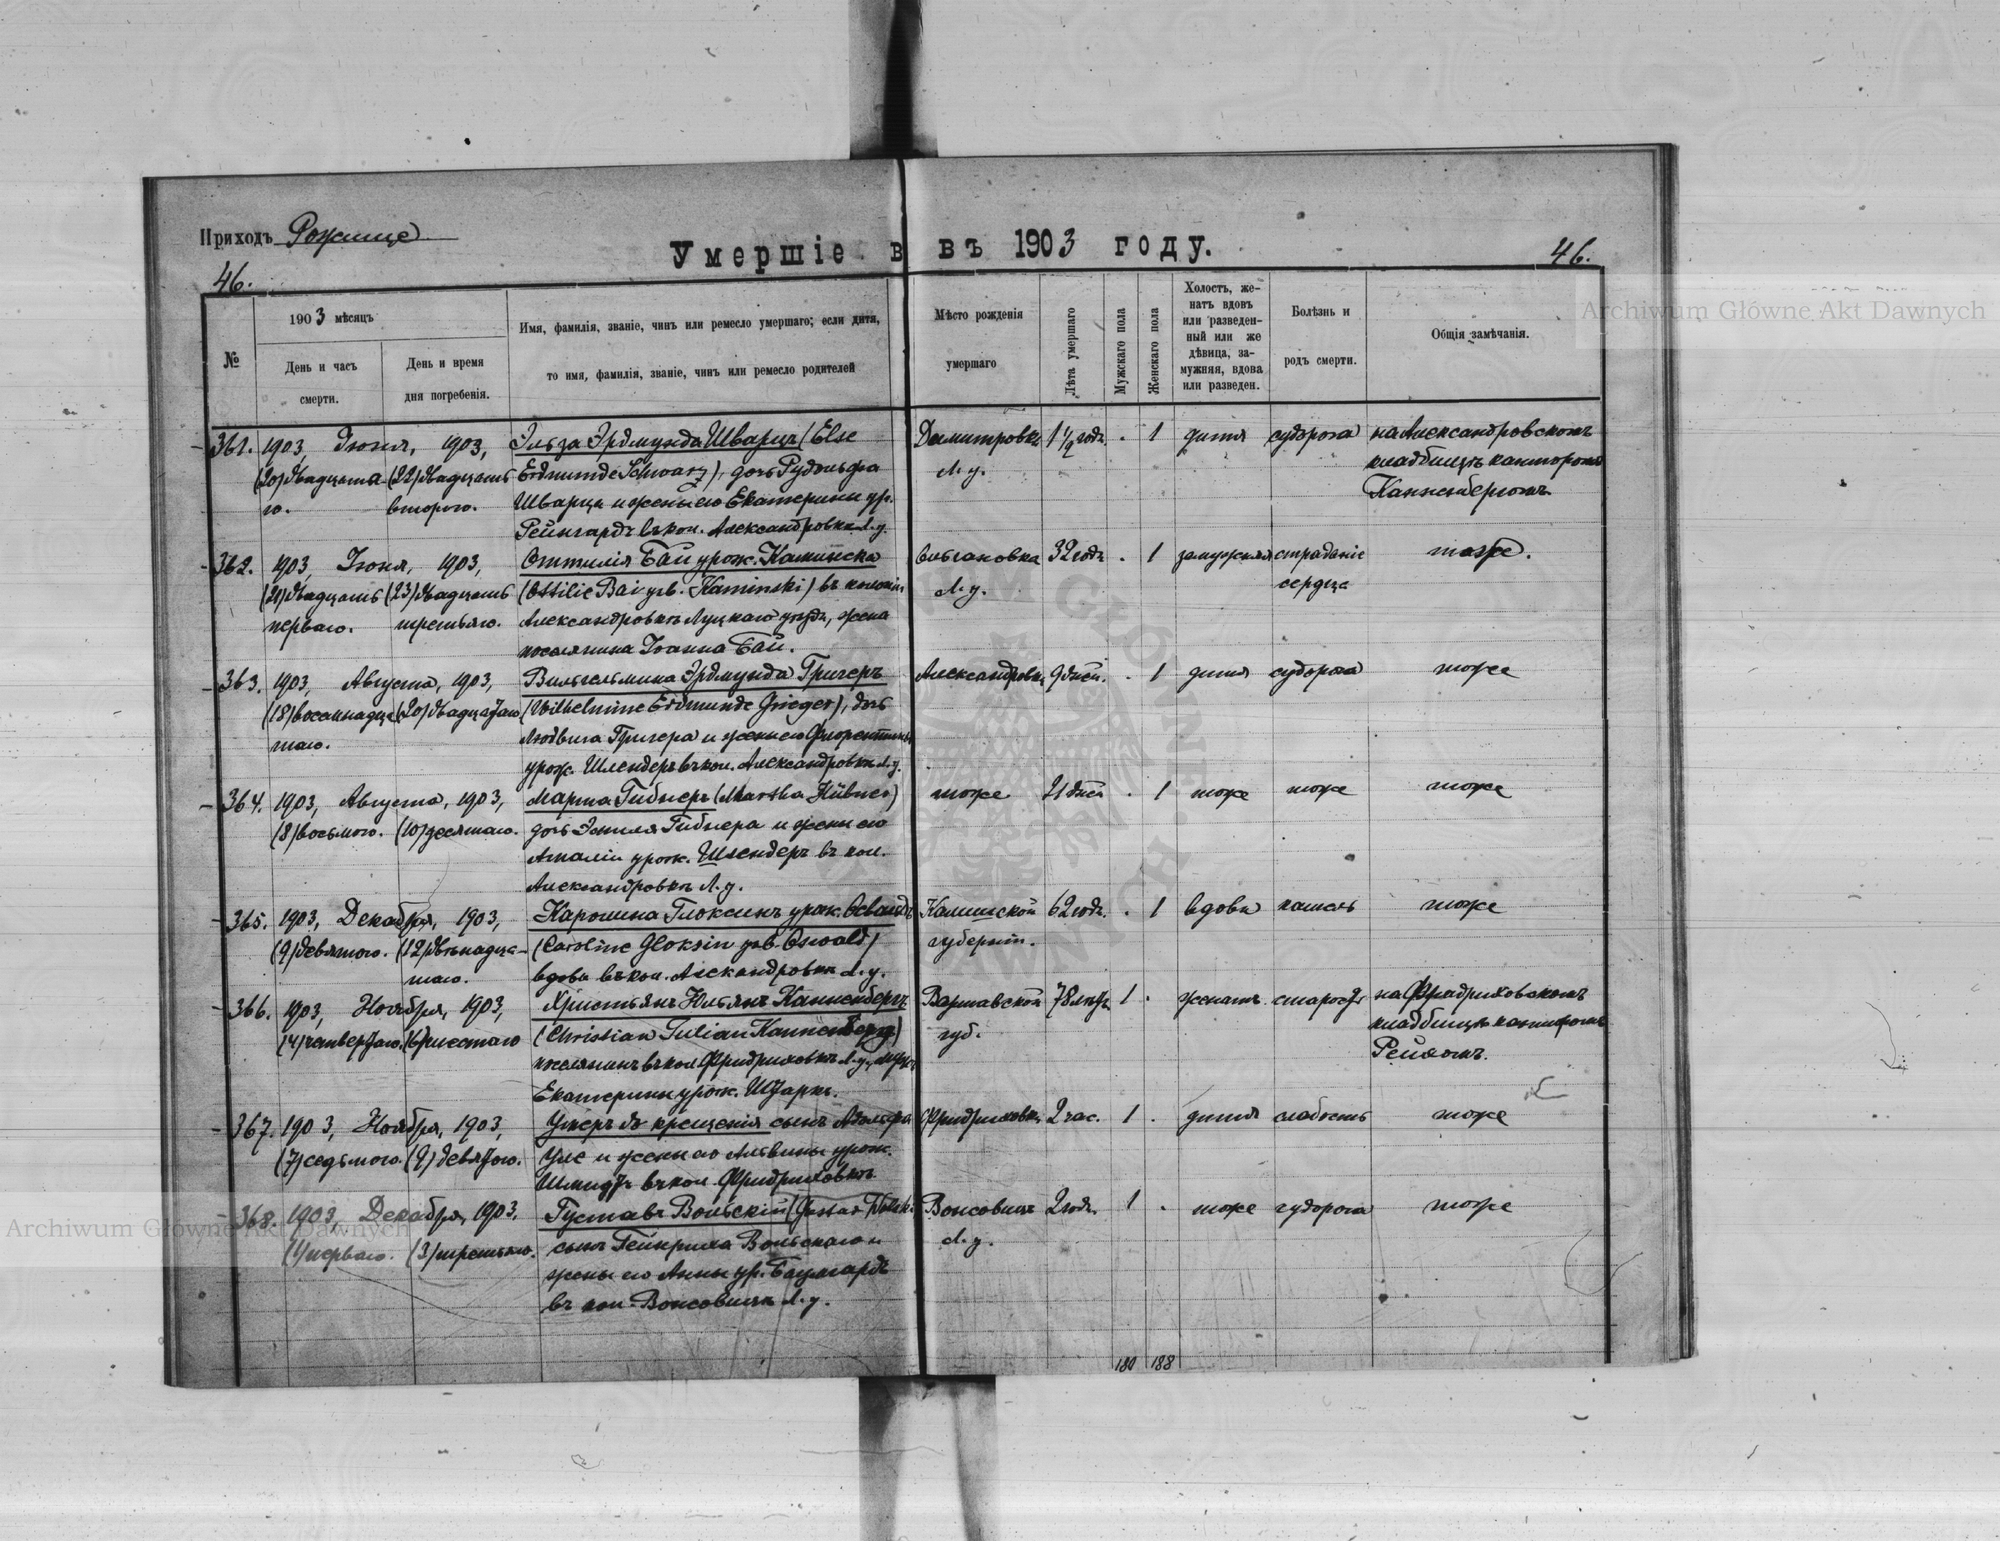 Приходъ Рожище
Умершіе въ 1903 году.
46.
46.
№
1903 мѣсяцъ
День и часъ смерти.
День и время дня погребенія.
Имя, фамилія, званіе, чинъ или ремесло умершаго; если дитя,
то имя, фамилія, званіе, чинъ или ремесло родителей
Мѣсто рожденія
умершаго
Лѣта умершаго
Мужскаго пола
Женскаго пола
Холостъ, же-
натъ вдовъ
или разведен-
ный или же
дѣвица, за-
мужняя, вдова
или разведен.
Болѣзнь и
родъ смерти.
Общія замѣчанія.
361. 1903, Іюня, 1903, Эльза Эрдмунда Шварцъ (Else Димитровка 1 1/2 годъ . 1 дитя судорога на Александровскомъ
(20) двадцата (22) двадцать Erdmunde Schwarz), дочь Рудольфа Л. у. кладбищѣ канторомъ
го. второго. Шварца и жены его Екатерины ур. Канненбергомъ
Рейнгардъ въ кол. Александровка Л. у.
362. 1903, Іюня, 1903, Оттилія Бай урож. Каминска 32 годъ . 1 замужняя страданіе тоже.
(21) двадцать (23) двадцать (Ottilie Bai geb. Kaminski) въ колоніи Л. у. сердца
перваго. третьяго. Александровкѣ Луцкаго уѣзда, жена
поселянина Іоанна Бай.
363. 1903, Августа, 1903, Вильгельмина Эрдмунда Григеръ Александровка 9 дней. . 1 дитя судорога тоже
(18) восемнадца (20) двадцатаго (Wilhelmine Erdmunde Grieger), дочь
таго. Людвига Григера и жены его Флорентины
урож. Шлендеръ въ кол. Александровкѣ Л. у.
364. 1903, Августа, 1903, Марта Гибнеръ (Martha Hübner) тоже 21 дней . 1 тоже тоже тоже
(8) восьмого. (10) десятаго. дочь Эмиля Гибнера и жены его
Амаліи урож. Шлендеръ въ кол.
Александровкѣ Л. у.
365. 1903, Декабря, 1903, Каролина Глоксинъ урож. Освальдъ Калишской 62 годъ. . 1 вдова кашель тоже
(9) девятого. (12) двѣнадца- (Caroline Gloksin geb. Oswald) губерніи.
таго. вдова въ кол. Александровкѣ Л. у.
366. 1903, Ноября, 1903, Христьянъ Юльянъ Канненбергъ Варшавской 78 лѣтъ 1 . женатъ старость на Фридриховскомъ
(4) четвертаго. (6) шестаго (Christian Julian Kannenberg) губ. кладбищѣ канторомъ
поселянинъ въ кол. Фридриховкѣ Л. у., мужъ
Екатерины урож. Штаркъ.
367. 1903, Ноября, 1903, Умеръ до крещенія сынъ Адольфа Фридриховка 2 час. 1 . дитя слабость тоже
(7) седьмого. (9) девятаго. Уле и жены его Альвины урож.
Шмидтъ въ кол. Фридриховкѣ
368. 1903, Декабря, 1903, Густавъ Вольскій (Gustav Wolski) 2 годъ. 1 . тоже судорога тоже
(1) перваго. (3) третьяго. сынъ Гейнриха Вольскаго и Л. у.
жены его Анны ур. Баумгардъ
въ кол. Л. у.
180 188
Archiwum Główne Akt Dawnych
Archiwum Główne Akt Dawnych